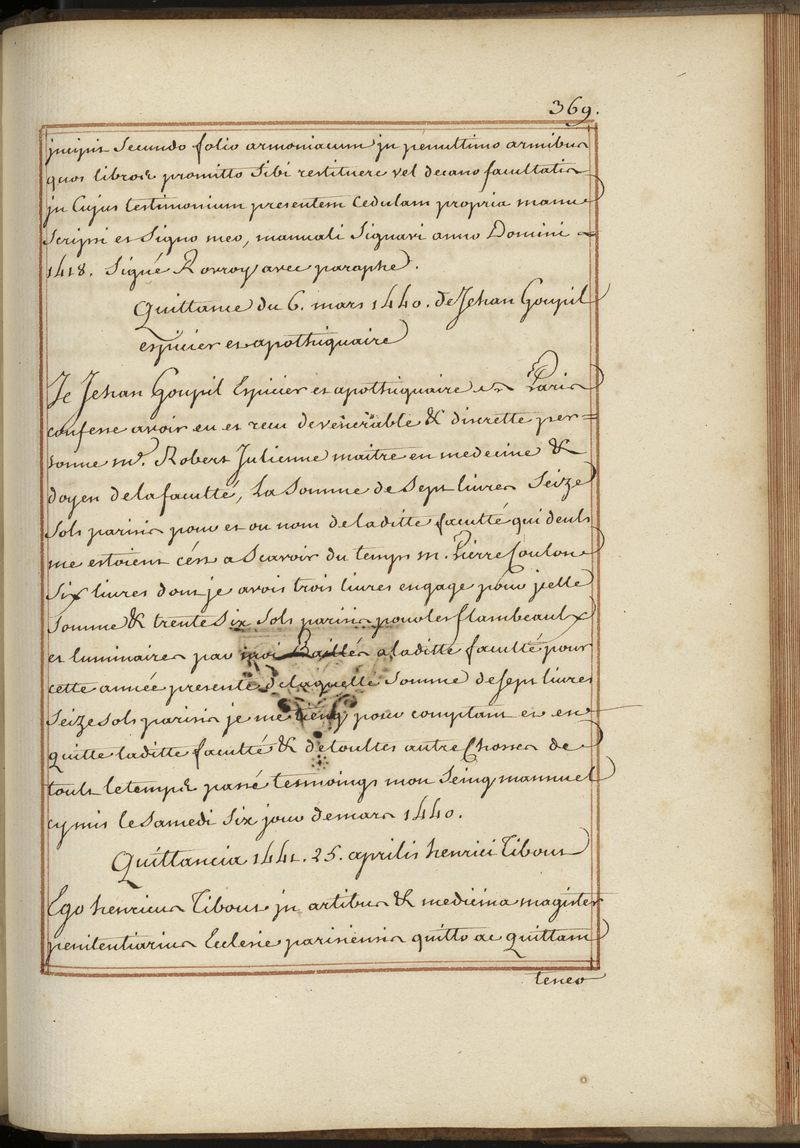 369.
jncipit Secundo folio armoniacum jn penultimo armibus
quos libros promitto Sibi restituere vel decano facultatis
jn Cujus testimonium presentem Cedulam propria manu
Scripsi et Signo meo, manuali Signavi anno Domini
1418. Signé Rovroy avec paraphe.
Quittance du 6. mars 1440. de Jehan Goupil
espicier et apothiquaire
Je Jehan Goupil Espicier et apothiquaire en Paris
confesse avoir eu et receu de venerable & discrette per=
sonne m.e Robert Julienne maitre en medecine &
doyen de la faculté, La Somme de Sept livres Seize
Sols parisis pour et ou nom de laditte faculté qui deuls
me estoient cést a Scavoir du temps m. Pierre Coulon
Six livres dont je avois trois livres en gage pour jcelle
Somme & trente Six Sols parisis pour les flambeaulx
et luminaires par moi Baillés a laditte faculté pour
cette année presente de laquelle Somme de Sept livres
Seize Sols parisis je me tieng pour comptant et en
quitte laditte faculté & de toultes autre Chosses de
touls le temps passé tesmoings mon Seing mannuel
cy mis le Samedi Six jour de mars 1440.
Quittancia 1441. 25. aprilis henrici Tibout
Ego henricus Tibout jn artibus & medicina magister
penitentiarius Ecclesie parisiensis quitto ac quittam
teneo